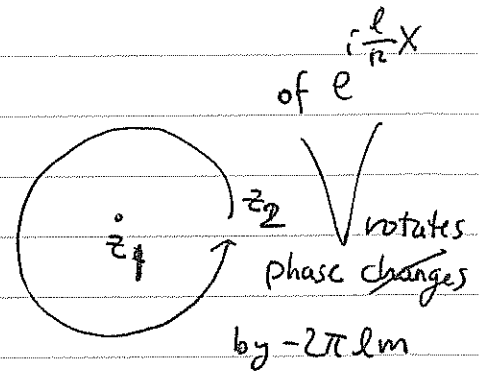 of e^{i\frac{l}{R}X}
z_2
z_1
rotates
phase changes
by -2πlm